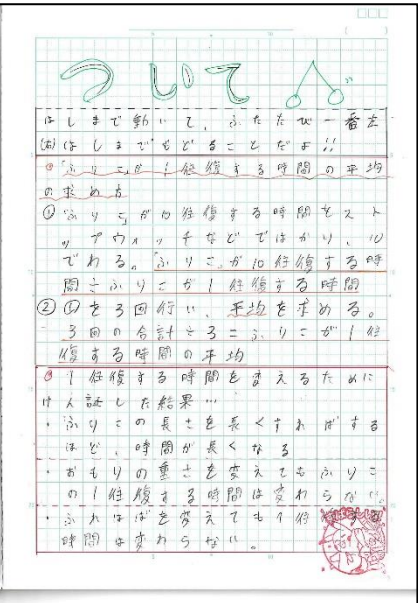 ついて
はしまで動いて、ふたたび一番左
(右)はしまでもどることだよ!!
「ふりこ」が1往復する時間の平均
の求め方
①「ふりこ」が10往復する時間をスト
ップウォッチなどではかり、10
でわる。「ふりこ」が10往復する時
間÷ふりこが1往復する時間
②①を3回行い、平均を求める。
3回の合計÷3=ふりこが1往
復する時間の平均
1往復する時間を変えるために
けん証した結果…
・ふりこの長さを長くすればする
ほど、時間が長くなる
・おもりの重さを変えてもふりこ
の1往復する時間は変わらない。
・ふれはばを変えても1往
時間は変わらない。